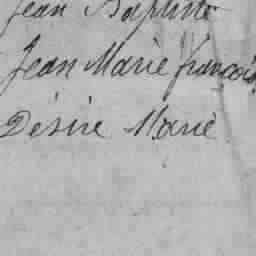 Jean Baptiste
Jean Marie françois
Désiré Marie